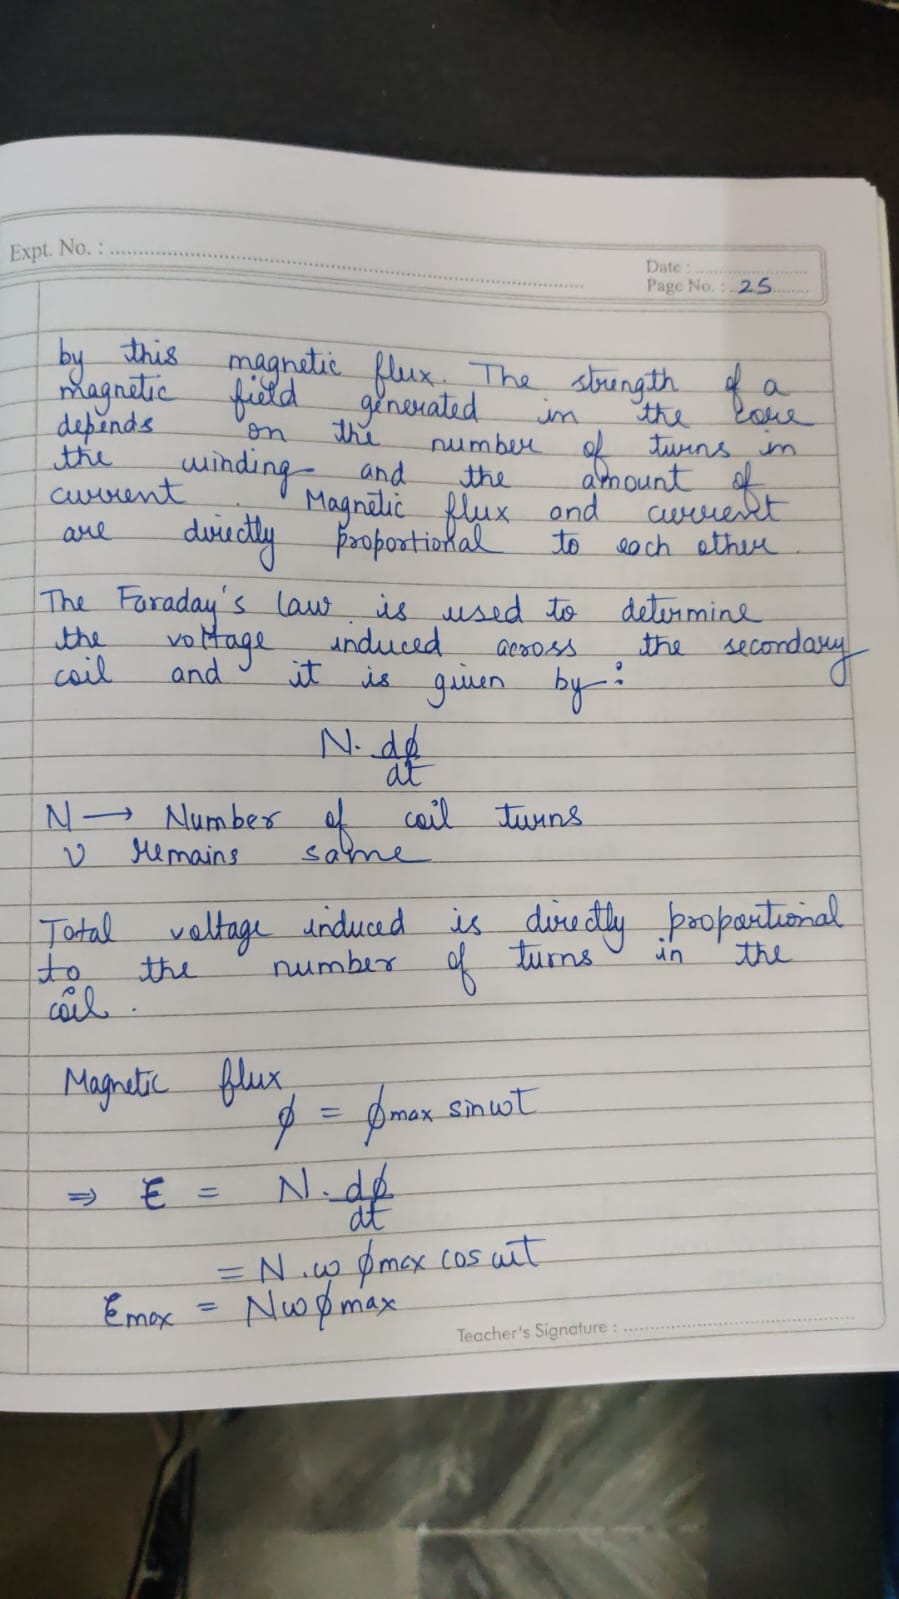 Expt. No. :
Date :
Page No. : 25
by this magnetic flux. The strength of a
magnetic field generated in the core
depends on the number of turns in
the winding and the amount of
current. Magnetic flux and current
are directly proportional to each other.
The Faraday's law is used to determine
the voltage induced across the secondary
coil and it is given by:
N. dϕ
dt
N → Number of coil turns
ν remains same
Total voltage induced is directly proportional
to the number of turns in the
coil.
Magnetic flux
ϕ = ϕmax sinωt
⇒ E = N. dϕ
dt
= N.ω ϕmax cos ωt
Emax = Nωϕmax
Teacher's Signature :